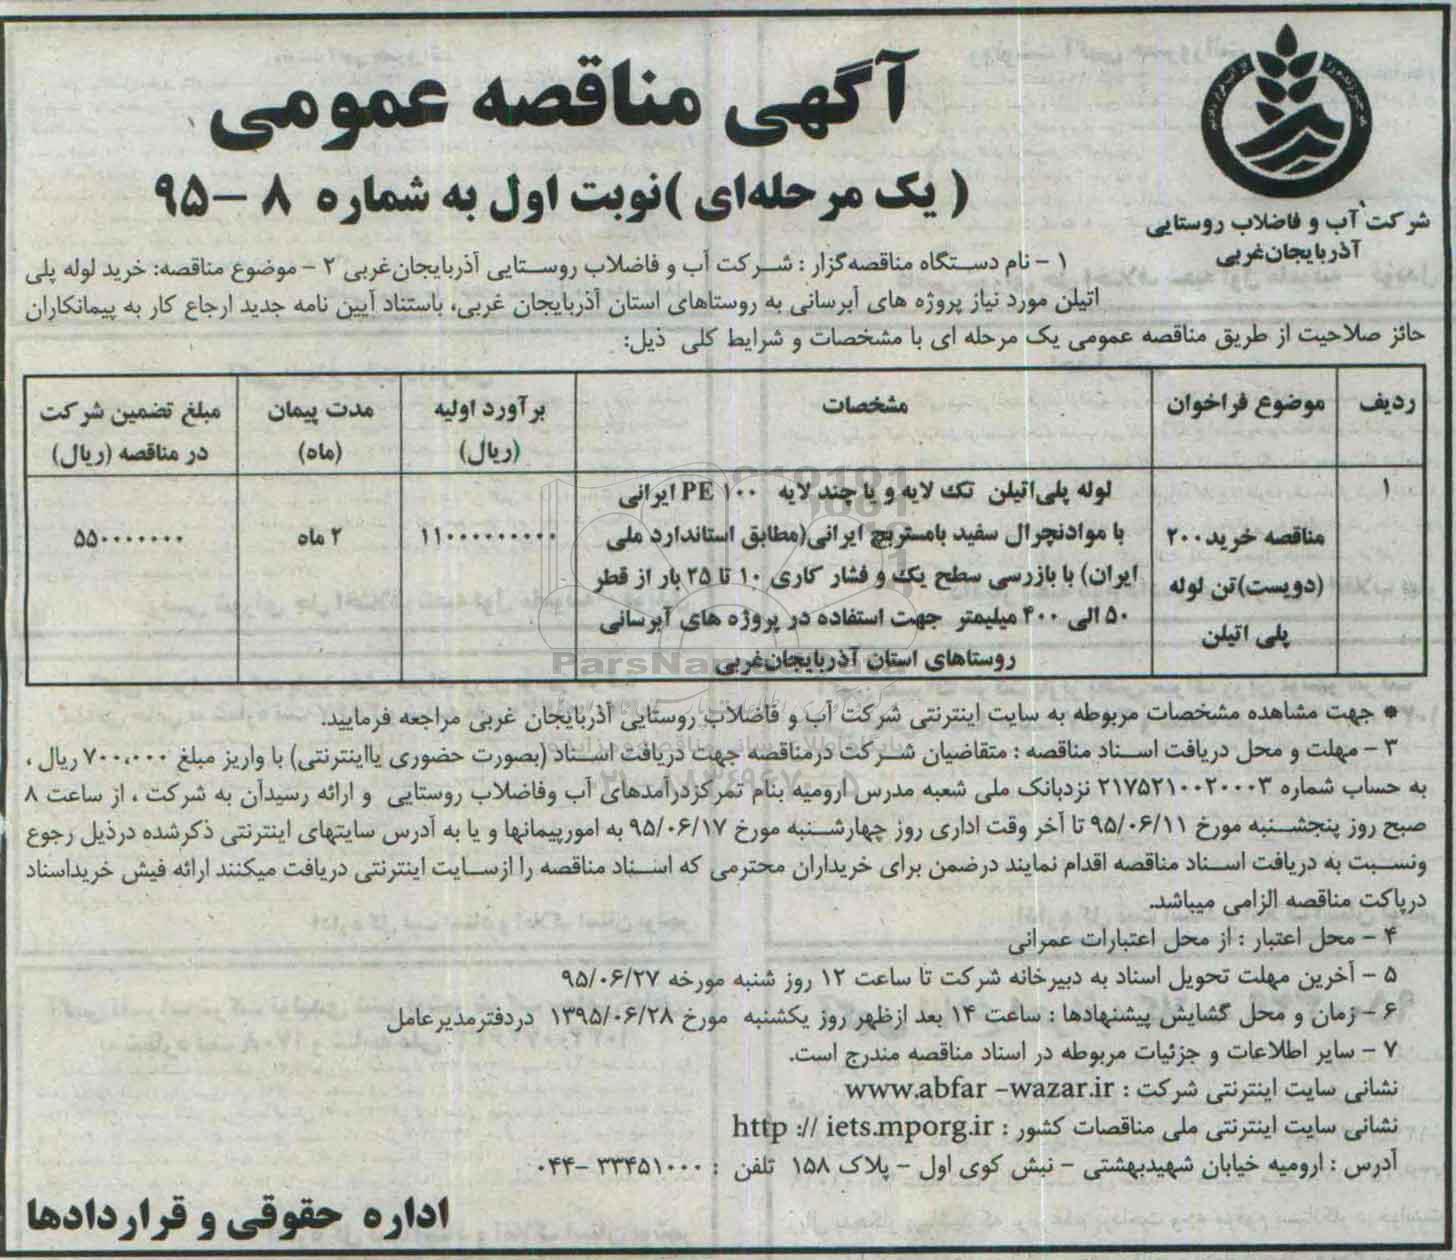 آگهی مناقصه عمومی
( یک مرحله‌ای )نوبت اول به شماره ۸ –۹۵
شرکت آب و فاضلاب روستایی
آذربایجان‌غربی
۱ – نام دستگاه مناقصه‌گزار : شرکت آب و فاضلاب روستایی آذربایجان‌غربی ۲ – موضوع مناقصه: خرید لوله پلی
اتیلن مورد نیاز پروژه های آبرسانی به روستاهای استان آذربایجان غربی، باستناد آیین نامه جدید ارجاع کار به پیمانکاران
حائز صلاحیت از طریق مناقصه عمومی یک مرحله ای با مشخصات و شرایط کلی ذیل:
ردیف
موضوع فراخوان
مشخصات
برآورد اولیه
(ریال)
مدت پیمان
(ماه)
مبلغ تضمین شرکت
در مناقصه (ریال)
۱
مناقصه خرید۲۰۰
(دویست)تن لوله
پلی اتیلن
لوله پلی‌اتیلن تک لایه و یا چند لایه PE ۱۰۰ ایرانی
با موادنچرال سفید بامستربچ ایرانی(مطابق استاندارد ملی
ایران) با بازرسی سطح یک و فشار کاری ۱۰ تا ۲۵ بار از قطر
۵۰ الی ۴۰۰ میلیمتر جهت استفاده در پروژه های آبرسانی
روستاهای استان آذربایجان‌غربی
۱۱۰۰۰۰۰۰۰۰۰
۲ ماه
۵۵۰۰۰۰۰۰۰
ParsNa
● جهت مشاهده مشخصات مربوطه به سایت اینترنتی شرکت آب و فاضلاب روستایی آذربایجان غربی مراجعه فرمایید.
۳ – مهلت و محل دریافت اسناد مناقصه : متقاضیان شرکت درمناقصه جهت دریافت اسناد (بصورت حضوری یااینترنتی) با واریز مبلغ ۷۰۰،۰۰۰ ریال ،
به حساب شماره ۲۱۷۵۲۱۰۰۲۰۰۰۳ نزدبانک ملی شعبه مدرس ارومیه بنام تمرکزدرآمدهای آب وفاضلاب روستایی و ارائه رسیدآن به شرکت ، از ساعت ۸
صبح روز پنجشنبه مورخ ۹۵/۰۶/۱۱ تا آخر وقت اداری روز چهارشنبه مورخ ۹۵/۰۶/۱۷ به امورپیمانها و یا به آدرس سایتهای اینترنتی ذکرشده درذیل رجوع
ونسبت به دریافت اسناد مناقصه اقدام نمایند درضمن برای خریداران محترمی که اسناد مناقصه را ازسایت اینترنتی دریافت میکنند ارائه فیش خریداسناد
درپاکت مناقصه الزامی میباشد.
۴ – محل اعتبار : از محل اعتبارات عمرانی
۵ – آخرین مهلت تحویل اسناد به دبیرخانه شرکت تا ساعت ۱۲ روز شنبه مورخه ۹۵/۰۶/۲۷
۶ – زمان و محل گشایش پیشنهادها : ساعت ۱۴ بعد ازظهر روز یکشنبه مورخ ۱۳۹۵/۰۶/۲۸ دردفترمدیرعامل
۷ – سایر اطلاعات و جزئیات مربوطه در اسناد مناقصه مندرج است.
نشانی سایت اینترنتی شرکت : www.abfar –wazar.ir
نشانی سایت اینترنتی ملی مناقصات کشور : http :// iets.mporg.ir
آدرس : ارومیه خیابان شهیدبهشتی – نبش کوی اول – پلاک ۱۵۸ تلفن : ۳۳۴۵۱۰۰۰ –۰۴۴
اداره حقوقی و قراردادها